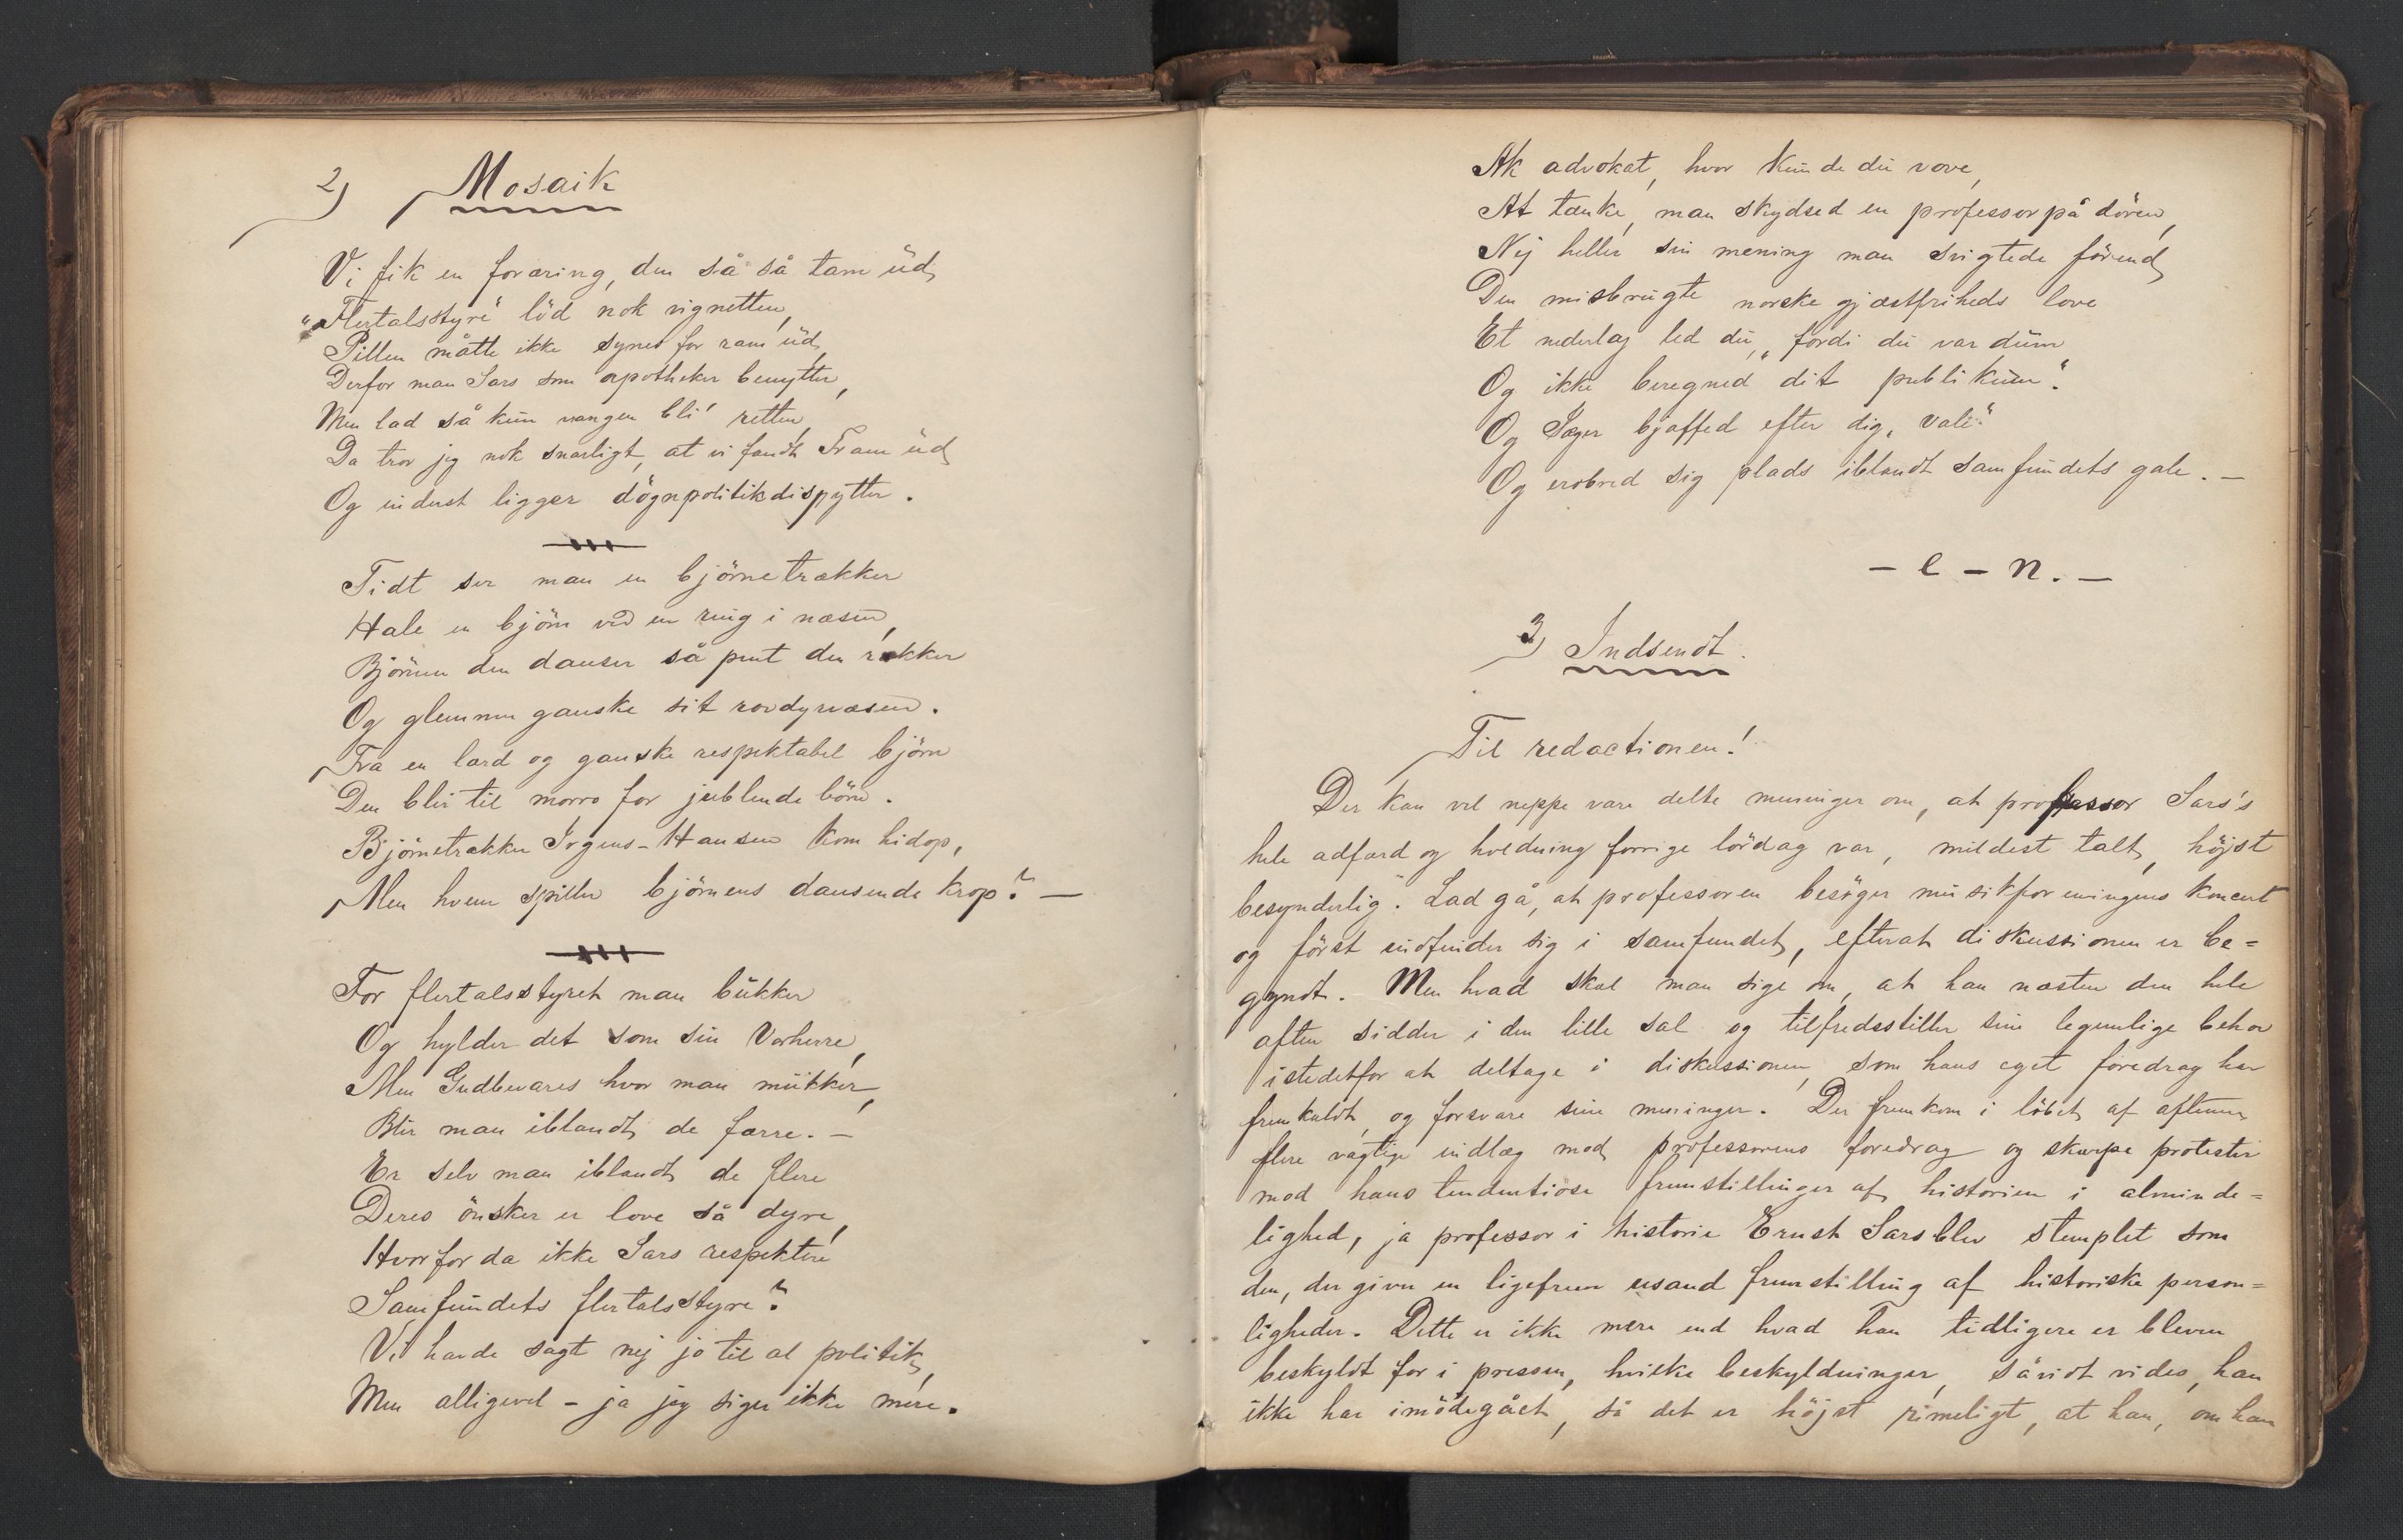 2) Mosaik
Vi fik en foræring, den så så tam ud,
"Flertalsstyre" löd nok vignetten,
Pillen måtte ikke synes for ram ud,
Derfor man Sars som apotheker benytter,
Men lad så kun vangen bli' retten,
Da tror jeg nok snarligt, at vi fandt Fram ud
Og inderst ligger dögnpolitikdispytter.
Tidt ser man en björnetrækker
Hale en björn ved en ring i næsen,
Björnen den danser så pent den rækker
Og glemmer ganske sit rovdyrvæsen.
Fra en lærd og ganske respektabel björn
Den blir til morro for jublende börn.
Björnetrækker Irgens-Hansen kom hidop,
Men hvem spiller björnens dansende krop? —
For flertalsstyret man bukker
Og hylder det som sin Vorherre,
Men Gudbevares hvor man mukker,
Blir man iblandt de færre. —
Er selv man iblandt de flere
Deres önsker er love så dyre,
Hvorfor da ikke Sars respektere
Samfundets flertalsstyre?
Vi havde sagt nej jo til al politik,
Men alligevel – ja jeg siger ikke mere.
Ak advokat, hvor kunde du vove,
At tænke, man skydsed en professor på dören,
Nej heller sin mening man svigtede förend
Den misbrugte norske gjæstfriheds love
Et nederlag led du, "fordi du var dum
Og ikke beregned dit publikum".
Og Jæger bjæffed efter dig, vale"
Og erobred sig plads iblandt samfundets gale. —
– e – n. —
3) Indsendt.
Til redactionen!
Der kan vel neppe være delte meninger om, at professor Sars's
hele adfærd og holdning forrige lördag var, mildest talt, höjst
besynderlig. Lad gå, at professoren besöger musikforeningens koncert
og först indfinder sig i samfundet, efterat diskussionen er be=
gyndt. Men hvad skal man sige om, at han næsten den hele
aften sidder i den lille sal og tilfredsstiller sine legemlige behov
istedetfor at deltage i diskussionen, som hans eget foredrag har
fremkaldt, og forsvare sine meninger. Der fremkom i löbet af aftenen
flere vægtige indlæg mod professorens foredrag og skarpe protester
mod hans tendentiöse fremstillinger af historien i alminde=
lighed, ja professor i historie Ernst Sars blev stemplet som
den, der giver en ligefrem usand fremstilling af historiske person=
ligheder. Dette er ikke mere end hvad han tidligere er bleven
beskyldt for i pressen, hvilke beskyldninger, såvidt vides, han
ikke har imödegået, så det er höjst rimeligt, at han, om han